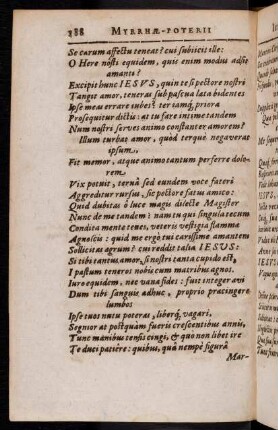 188 MYRRHÆ-POTERII
Se carum affectu teneat? cui subiicit ille:
O Here nosti equidem, quis enim modus adsit
amanti?
Excipit hunc IESVS, quin te si pectore nostri
Tangit amor, teneras sub pascua lata bidentes
Ipse meu errare iubeis? ter iamq́; priora
Prosequitur dictis: at tu fare intime tandem
Num nostri serves animo constanter amorem?
Illum turbat amor, quòd terque negaverat
ipsum,
Fit memor, atque animo tantum perferre dolorem,
Vix potuit, terna sed eundem voce fateri
Aggreditur rursus, sit pectore fatur amico:
Quid dubitas ô luce magis dilecte Magister
Nunc de me tandem? nam tu qui singula tecum
Condita mente tenes, veteris vestigia flamma
Agnoscis: quid me ergò tui carissime amantem
Sollicitas agrum? cui reddit talia IESUS:
Si tibi tantus amor, si nostri tanta cupido est,
I pastum teneros nobis cum matribus agnos.
Iuro equidem, nec vana fides: fuit integer ævi
Dum tibi sanguis adhuc, proprio præcingere
lumbos
Ipse tuos nutu poteras, liberq́; vagari,
Segnior at postquàm fueris crescentibus annis,
Tunc manibus tensis cingi, & quò non libet ire
Te duci patiêre: quibus, quâ nempe figurâ
Mar-